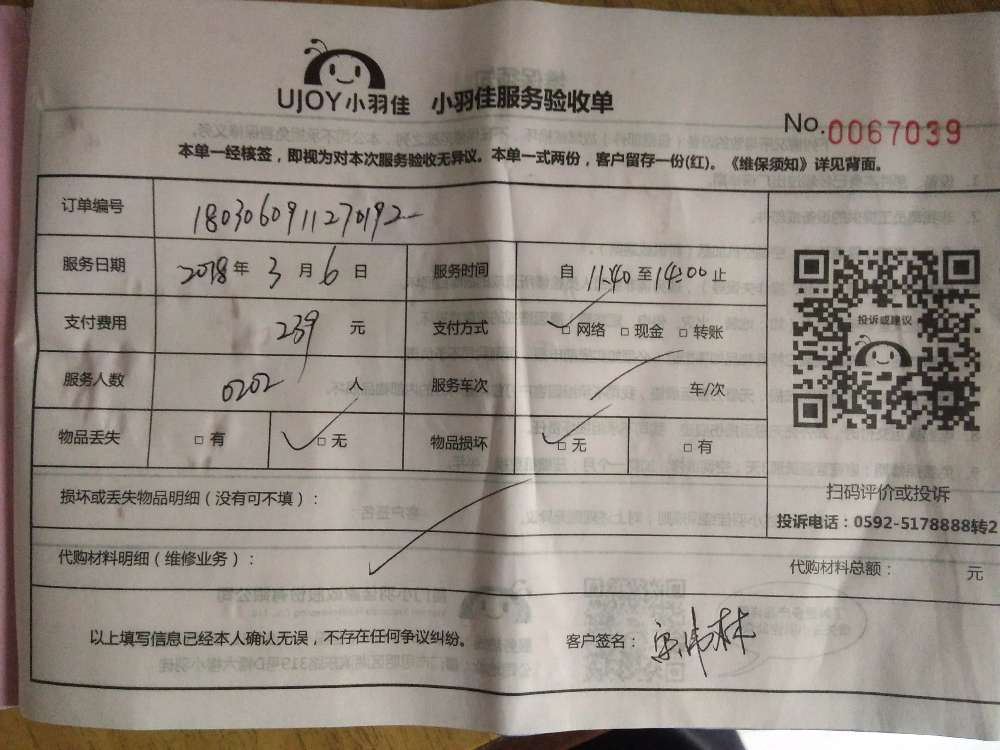 UJOY小羽佳 小羽佳服务验收单
No.0067039
本单一经核签，即视为对本次服务验收无异议。本单一式两份，客户留存一份(红)。《维保须知》详见背面。
订单编号 1803060911270192
服务日期 2018年 3月 6日 服务时间 自 11:40 至 14:00 止
支付费用 239 元 支付方式 □ 网络 □ 现金 □ 转账
投诉或建议
服务人数 0202 人 服务车次 车/次
物品丢失 □ 有 □ 无 物品损坏 □ 无 □ 有
损坏或丢失物品明细（没有可不填）：
扫码评价或投诉
投诉电话：0592-5178888转2
代购材料明细（维修业务）：
代购材料总额： 元
以上填写信息已经本人确认无误，不存在任何争议纠纷。 客户签名：